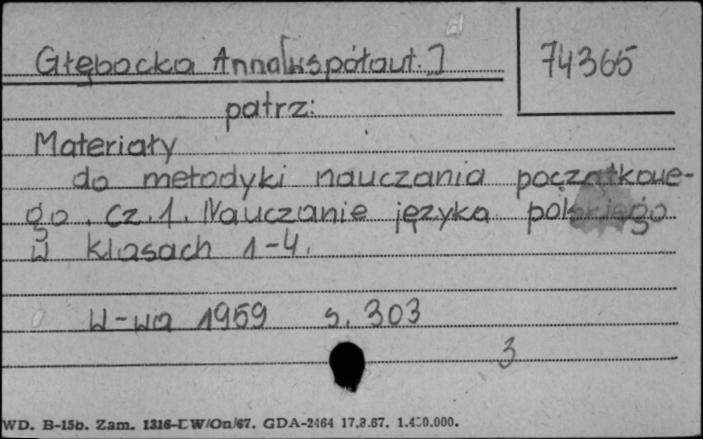 Głębocka Anna[współaut.]
74365
patrz:
Materiały
do metodyki nauczania początkowe-
go. Cz.1. Nauczanie języka polskiego
w klasach 1-4.
W-wa 1959 s. 303
3
WD. B-15b. Zam. 1316-DW/On/67. GDA-2464 17.3.67.